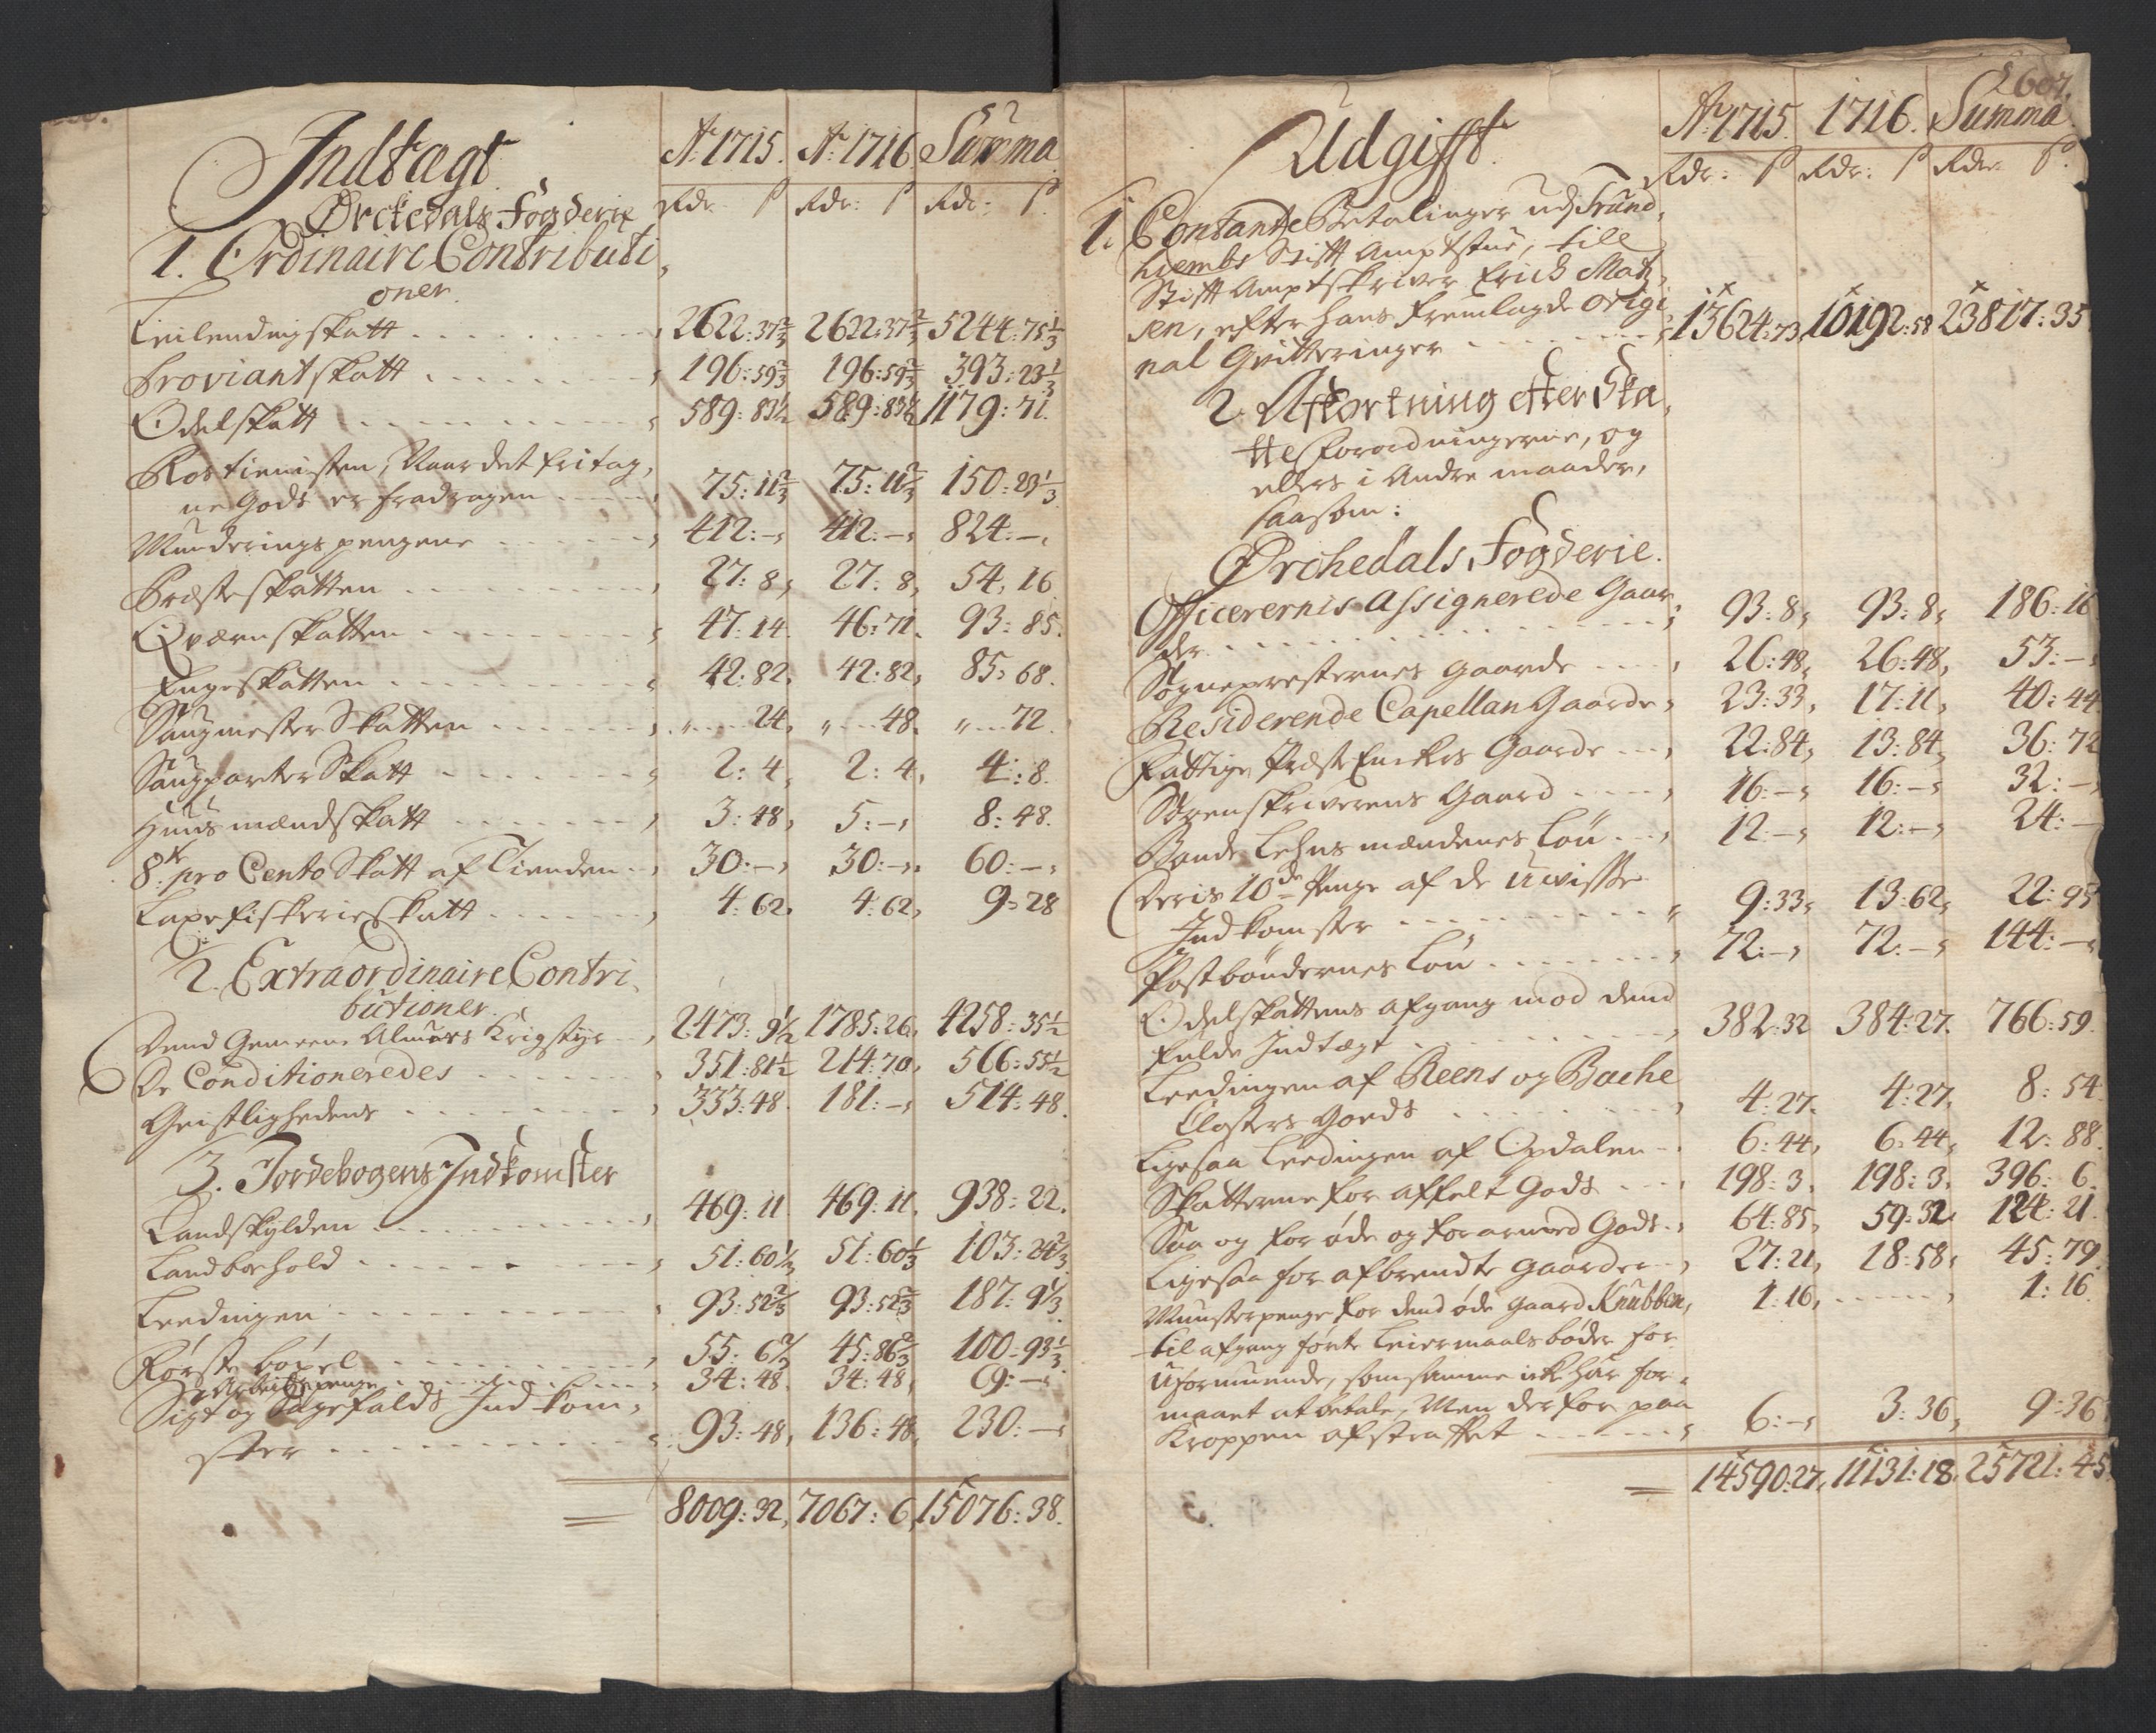 Indtægt
Ørckedals Fogderie
Ao 1715. Ao 1716 Summa
Rdr: ß Rdr: ß Rdr: ß
1. Ordinaire Contributi
oner.
Leilendingskatt 2622:37⅔ 2622:37⅔ 5244:75⅓
Proviantskatt 196:59⅔ 196:59⅔ 393:23⅓
Odelskatt 589:83½ 589:83½ 1179:71.
Rostienisten, Naar det fritag,
ne Gods er fradragen 75:11⅔ 75:11⅔ 150:23⅓
Munderings pengene 412:- 412:- 824:-
Præsteskatten 27:8, 27:8, 54,16
Qværnskatten 47:14. 46:71. 93:85.
Engeskatten 42:82, 42:82, 85:68.
Saugmester Skatten „ 24, „ 48. „ 72.
Saugparter Skatt 2:4, 2:4, 4:8.
Huusmændskatt 3:48, 5:-, 8:48.
8te pro Cento Skatt af Tienden 30:- 30:- 60:-
Laxefiskerieskatt 4:62, 4:62, 9:28
2. Extraordinaire Contri,
butioner.
Dend Gemeene Almues Krigstyr 2473:9½ 1785:26, 4258:35½
De Conditioneredes 351:81½ 214:70, 566:55½
Geistlighedens 333:48. 181:- 514:48.
3. Jordebogens Indkomster
Landskylden 469:11. 469:11. 938:22.
Landbohold 51:60⅓ 51:60⅓ 103:24⅔
Leedingen 93:52⅔ 93:52⅔ 187:9⅓
Første bøxel 55:6⅔ 45:86⅔ 100:93⅓
Arbeidspenge 34:48. 34:48, 69:-
Sigt og Sagefalds Indkom,
ster 93:48, 136:48, 230:-
8009:32, 7067:6, 15076:38.
607.
Udgifft.
Ao 1715. 1716. Summa
Rdr: ß Rdr: ß Rdr: ß.
1. Contante Betalinger udj Trund,
hiembs Stifft Amptstue, till
Stifft Amptskriver Erich Mat,
sen, efter hans fremlagde origi
nal Qvitteringer 13624:73, 10192:58 23817:35
2. Afkortning efter Ska,
tte forordningerne, og
ellers i Andre maader,
saasom:
Ørchedals Fogderie.
Officerernis Assignerede Gaar,
der 93:8, 93:8, 186:16
Sognepresternes gaarde 26:48, 26:48, 53:-
Residerende Capellan Gaarde, 23:33, 17:11, 40:44
Fattige Præste Enckes Gaarde 22:84, 13:84, 36:72
Sorenskriverens Gaard 16:- 16:- 32:-
Bonde Lehnsmændenes Løn 12:- 12:- 24:-
Deris 10de Penge af de uvisse
Indkomster 9:33, 13:62, 22:95
Postbøndernes Løn 72:- 72:- 144:-
Odelskattens afgang mod dend
fulde Indtægt 382:32 384:27. 766:59.
Leedingen af Reens og Backe
Closters Goeds 4:27. 4:27, 8:54.
Ligesaa Leedingen af Opdalen 6:44, 6:44, 12:88.
Skatterne for affelt Gods 198:3, 198:3, 396:6.
Saa og for øde og forarmed Gods 64:85, 59:32. 124:21.
Ligesaa for afbrendte gaarder 27:21, 18:58, 45:79.
Munsterpenge for dend øde gaard Knubben, 1:16, 1:16.
til afgang førte Leiermaals bøder for
uformuende, som samme ick har for,
maaet at betale, Men derfor paa
Kroppen afstraffet 6:- 3:36, 9:36
14590:27, 11131:18. 25721:45.